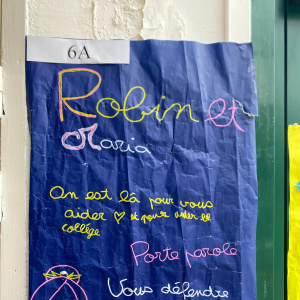 6A
Robin et
Maria
On est là pour vous
aider ♡ et pour aider le
collége
Porte parole
Vous défendre